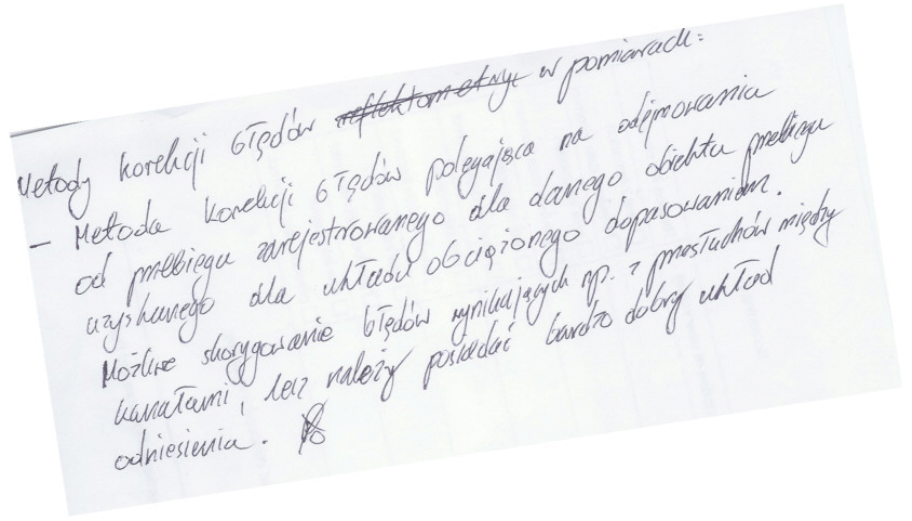 Metody korekcji błędów reflektometryc w pomiarach:
– Metoda korekcji błędów polegająca na odejmowania
od przebiegu zarejestrowanego dla danego obiektu przebiegu
uzyskanego dla układu obciążonego dopasowaniem.
Możliwe skorygowanie błędów wynikających np. z przesłuchów między
kanałami, lecz należy posiadać bardzo dobry układ
odniesienia.